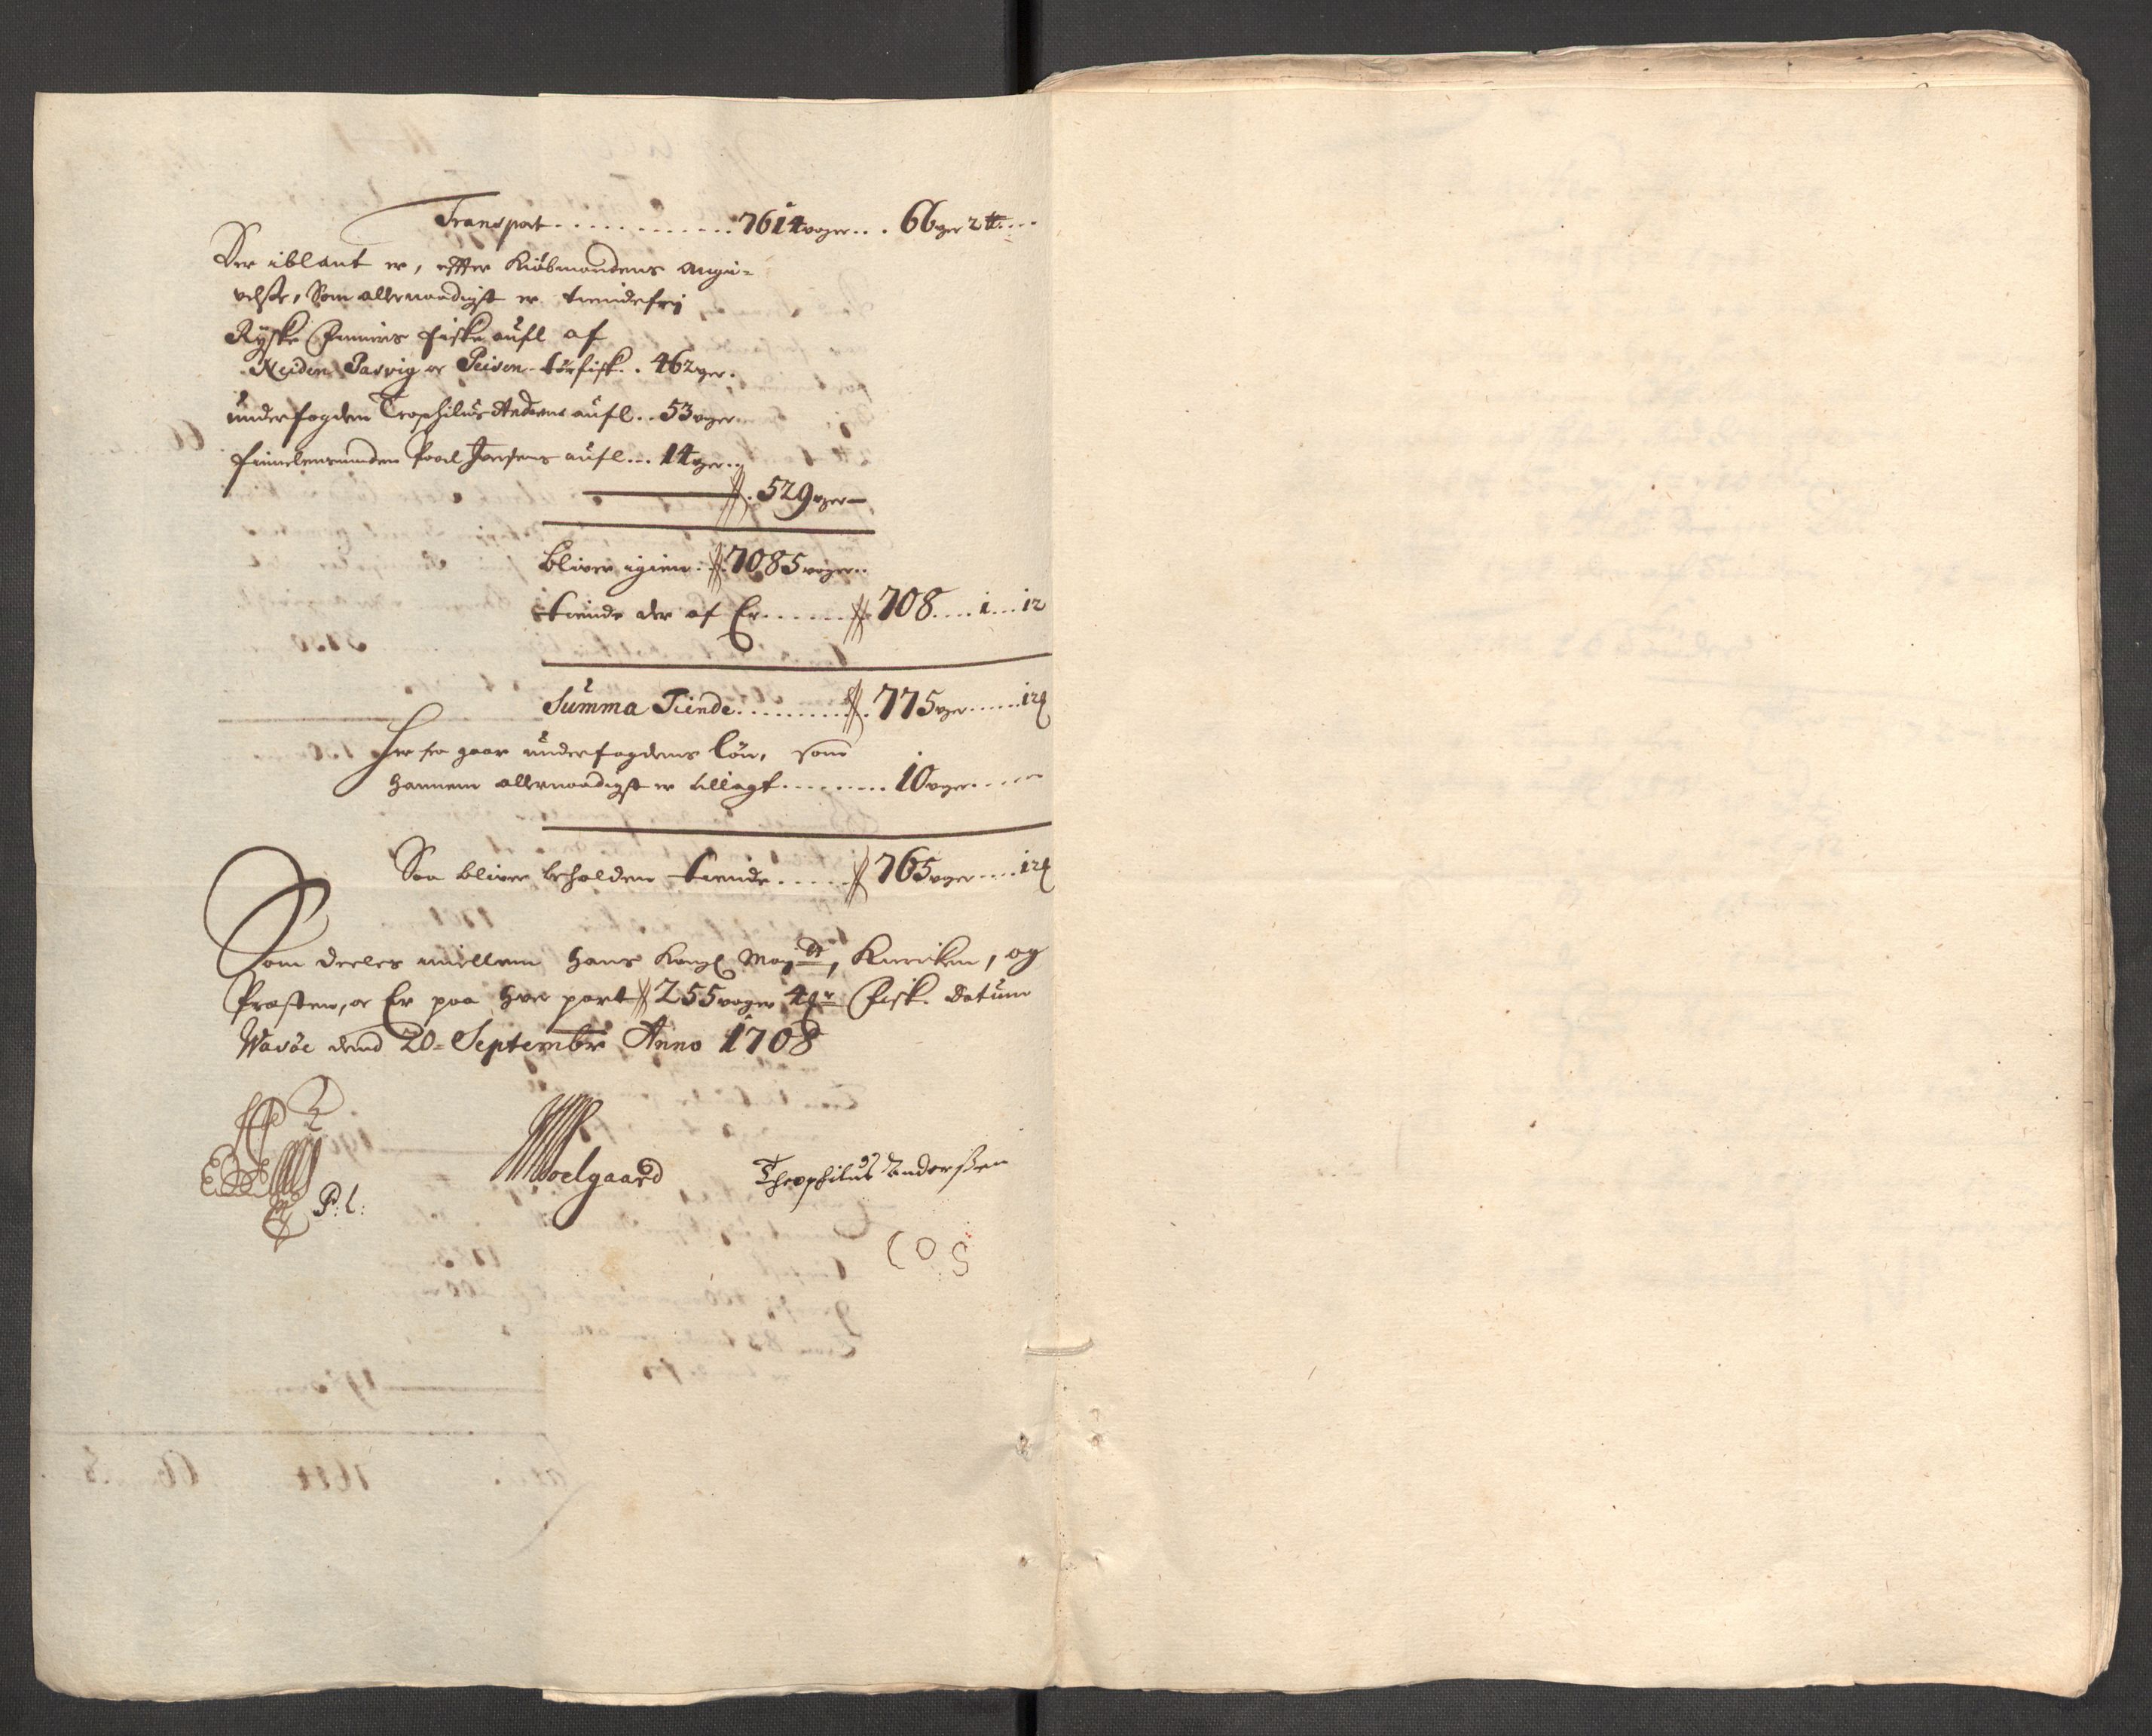 Transport . . . . . . . . . . . . 7614 woger . . . 66 wger 2 ℔ . . .
Der iblant er, effter Kiöbmandens angi-
velse, Som allernaadigst er tiendefrj
Ryske Finners fiske aufl af
Neiden Pasvig oc Peisen - törfisk . . 462 wger .
underfogden Teophilus Anders aufl . . 53 woger
finnelensmanden Poel aufl . . . 14 wger . .
529 wger —
bliver igien . . 7085 woger . .
tiende der af Er . . . . . . 708 . . . . 1 . . . 12
Summa Tiende . . . . . . . . . 775 wger . . . . . . 12
Her fra gaar underfogdens lön, som
hannem allernaadigst er tillagt . . . . . . . . . 10 woger . . . . .
Saa bliver beholden tiende . . . . . 765 wger . . . . 12
Som deeles imellem Hans Kongl May.tt, Kircken, og
Præsten, oc Er paa hver part 255 woger Fisk. Datum
Wasöe dend 20 = Septembr Anno 1708
P: L:
Moelgaard
Theophilus Anderssen